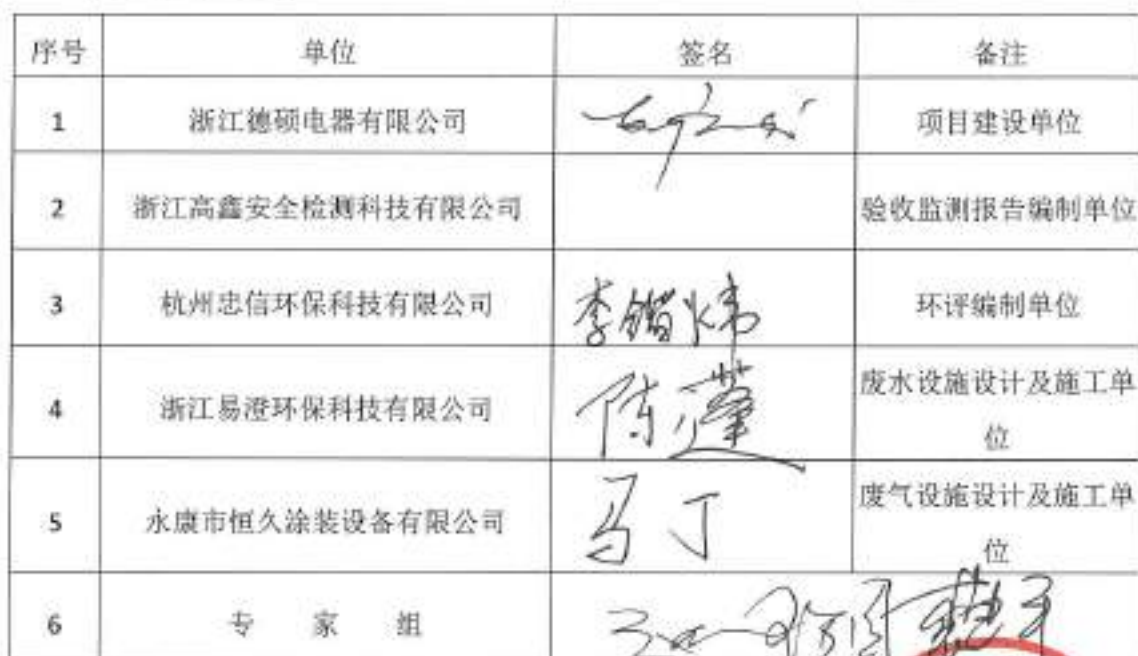 序号 单位 签名 备注
1 浙江德硕电器有限公司 项目建设单位
2 浙江高鑫安全检测科技有限公司 验收监测报告编制单位
3 杭州忠信环保科技有限公司 李锴炜 环评编制单位
4 浙江易澄环保科技有限公司 陈蓬 废水设施设计及施工单
位
5 永康市恒久涂装设备有限公司 马丁 废气设施设计及施工单
位
6 专 家 组